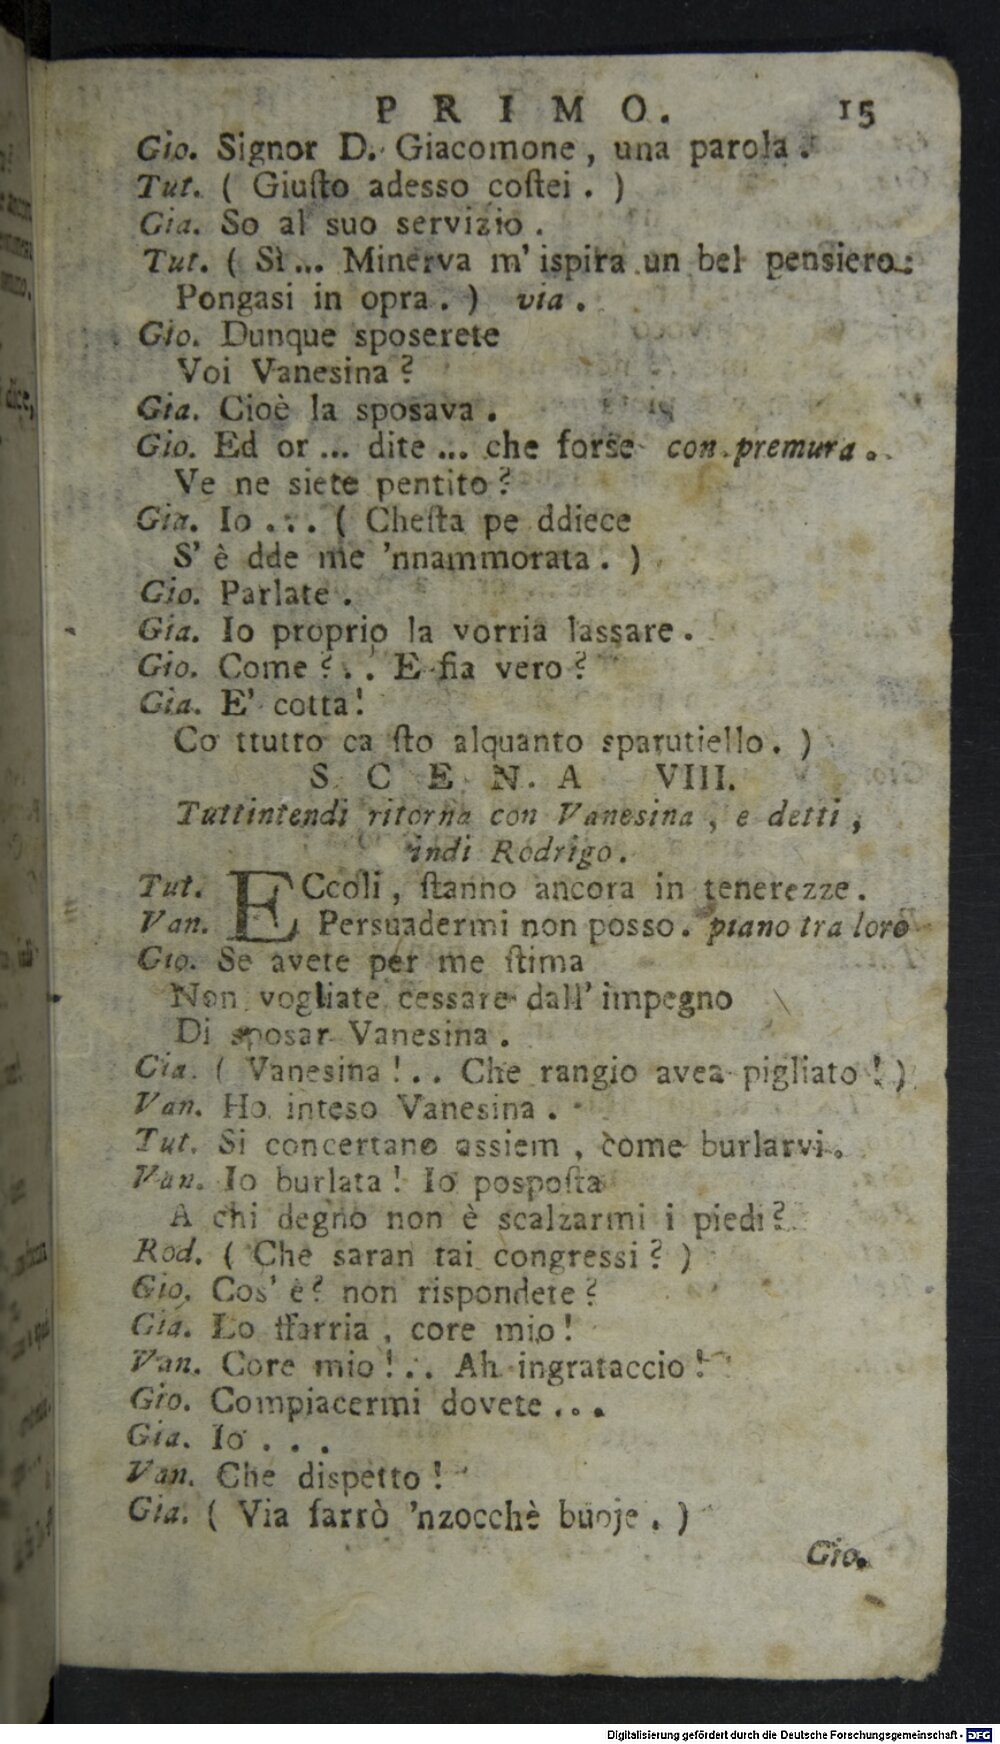 PRIMO. 15
Gio. Signor D. Giacomone, una parola.
Tut. ( Giuſto adesso coſtei. )
Gia. So al suo servizio.
Tut. ( Sì... Minerva m'ispira un bel pensiero:
Pongasi in opra. ) via.
Gio. Dunque sposerete
Voi Vanesina?
Gia. Cioè la sposava.
Gio. Ed or... dite... che forse con premura.
Ve ne siete pentito?
Gia. Io... ( Cheſta pe ddiece
S' è dde me 'nnammorata. )
Gio. Parlate.
Gia. Io proprio la vorria lassare.
Gio. Come?.. E fia vero?
Gia. E' cotta!
Co ttutto ca ſto alquanto sparutiello. )
SCENA VIII.
Tuttintendi ritorna con Vanesina, e detti,
indi Rodrigo.
Tut. ECcoli, ſtanno ancora in tenerezze.
Van. Persuadermi non posso. piano tra loro
Gio. Se avete per me ſtima
Non vogliate cessare dall' impegno
Di sposar Vanesina.
Gia. ( Vanesina!.. Che rangio avea pigliato! )
Van. Ho inteso Vanesina.
Tut. Si concertano assiem, come burlarvi.
Van. Io burlata! Io pospoſta
A chi degno non è scalzarmi i piedi?
Rod. ( Che saran tai congressi? )
Gio. Cos' è? non rispondete?
Gia. Lo ffarria, core mio!
Van. Core mio!.. Ah ingrataccio!
Gio. Compiacermi dovete...
Gia. Io...
Van. Che dispetto!
Gia. ( Via farrò 'nzocchè buoje. )
Gio.
Digitalisierung gefördert durch die Deutsche Forschungsgemeinschaft - DFG